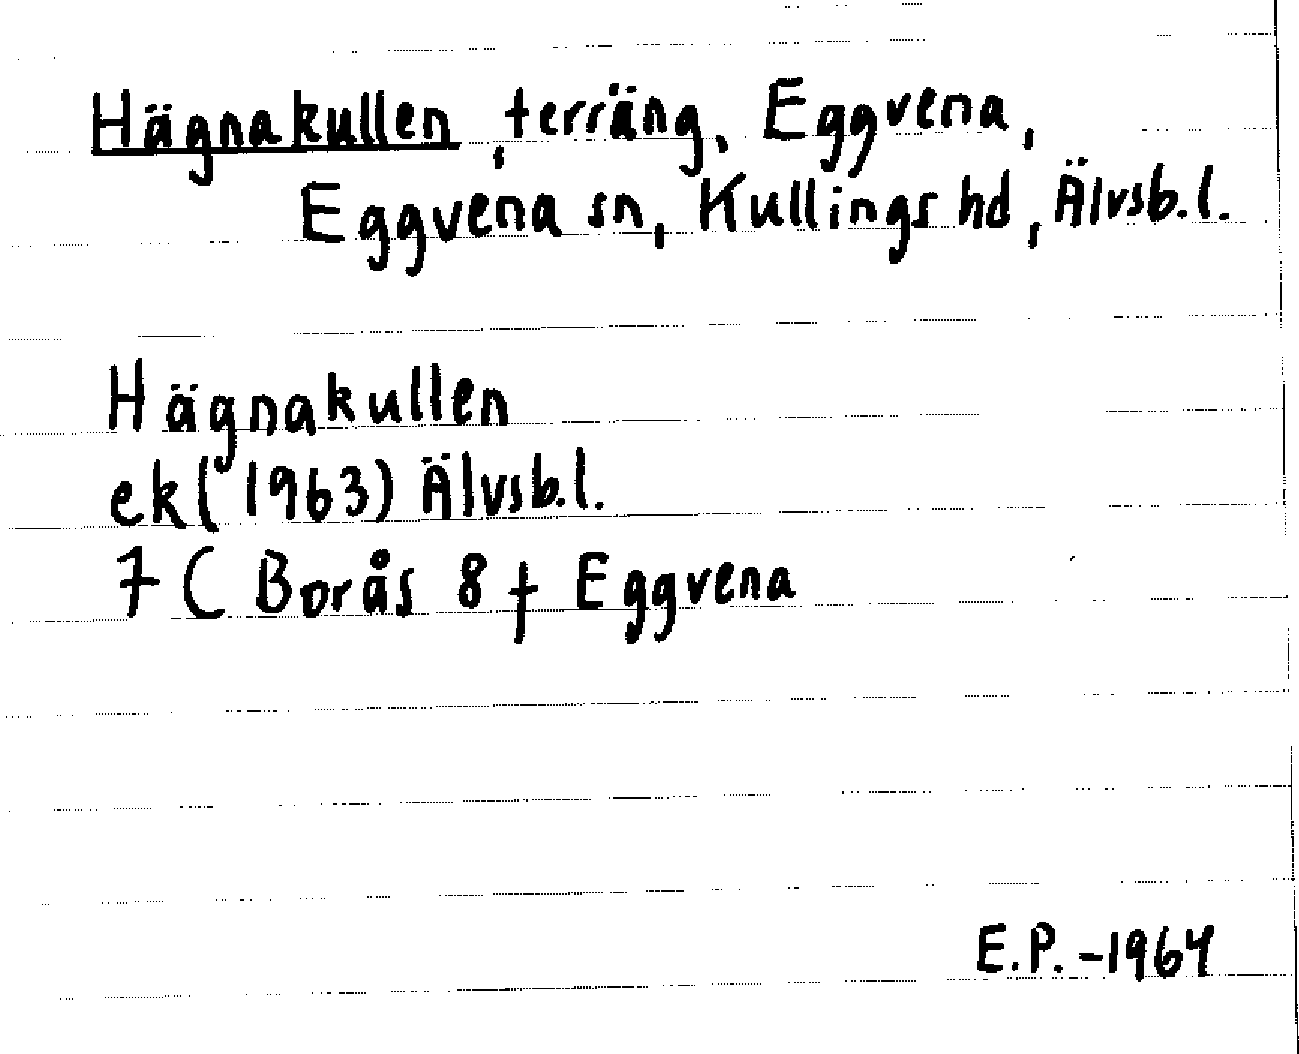 Hägnakullen, terräng, Eggvena,
Eggvena sn, Kullings hd, Älvsb.l.
Hägnakullen
ek (1963) Älvsb.l.
7C Borås 8f Eggvena
E.P. -1964